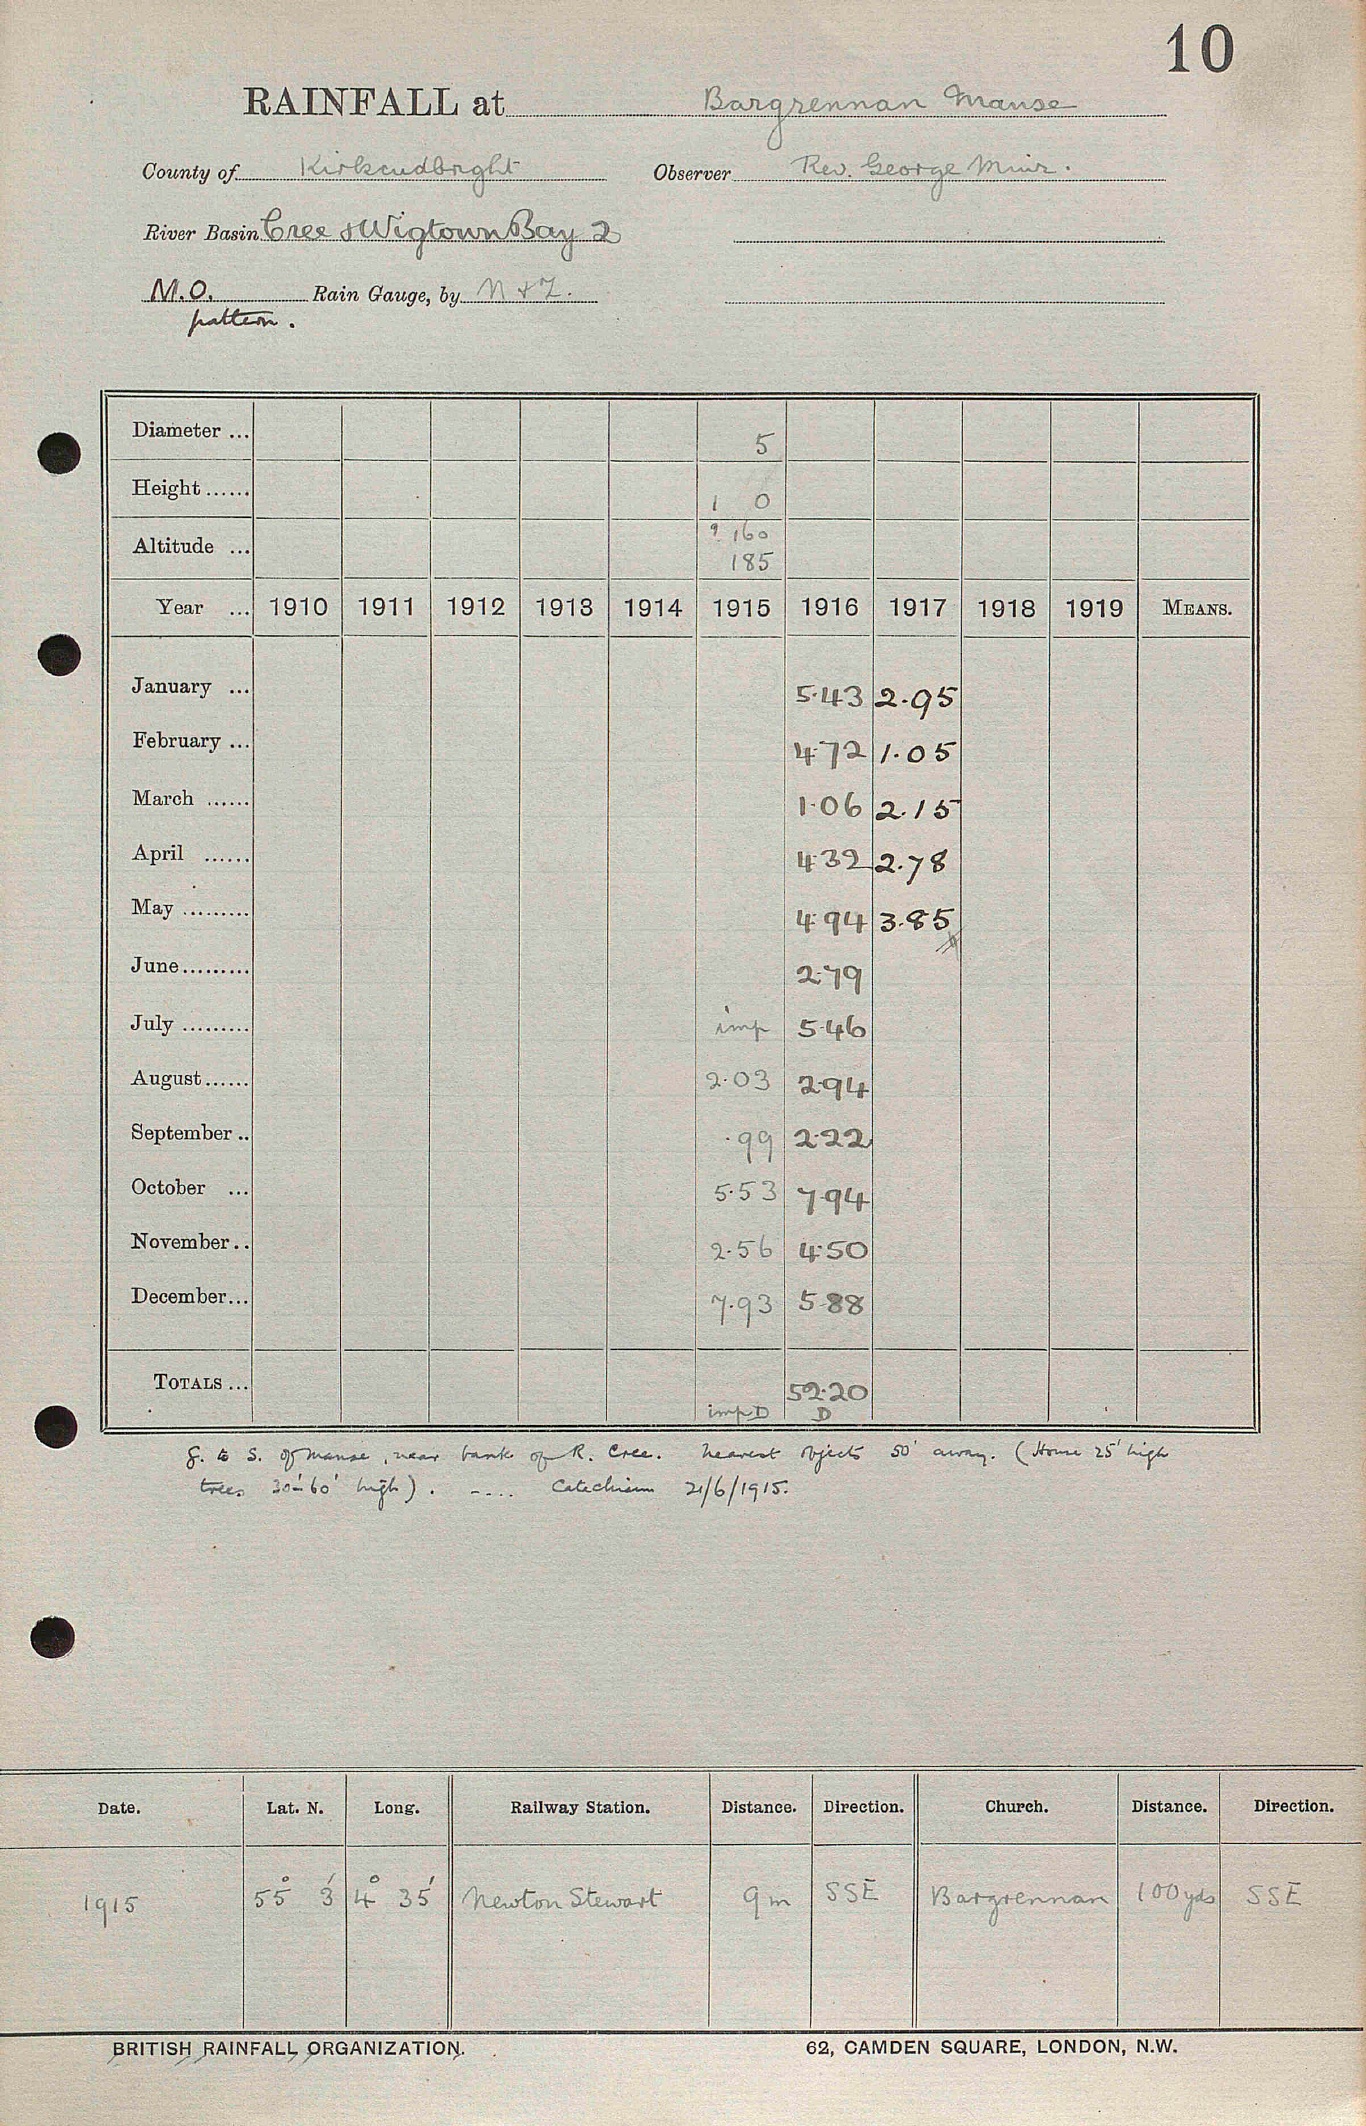 10
RAINFALL at Bargrennan Manse
County of Kirkcudbrght Observer Rev. George Muir.
River Basin Cree & Wigtown Bay 2
M.O. Rain Gauge, by N & Z.
pattern.
Diameter ... 5
Height ...... 1 0
? 160
Altitude ... 185
Year ... 1910 1911 1912 1913 1914 1915 1916 1917 1918 1919 MEANS.
January ... 5.43 2.95
February ... 4.72 1.05
March ...... 1.06 2.15
April ...... 4.32 2.78
May ......... 4.94 3.85
June ......... 2.79
July ......... imp 5.46
August ...... 2.03 2.94
September .. .99 2.22
October ... 5.53 7.94
November .. 2.56 4.50
December ... 7.93 5.88
TOTALS ... 52.20
imp D D
g. to S. of manse, near bank of R. Cree. nearest objects 50' away. (House 25' high
trees 30'-60' high). -.... Catechism 21/6/1915.
Date. Lat. N. Long. Railway Station. Distance. Direction. Church. Distance. Direction.
1915 55° 3' 4° 35' Newton Stewart 9 m SSE Bargrennan 100 yds SSE
BRITISH RAINFALL ORGANIZATION. 62, CAMDEN SQUARE, LONDON, N.W.